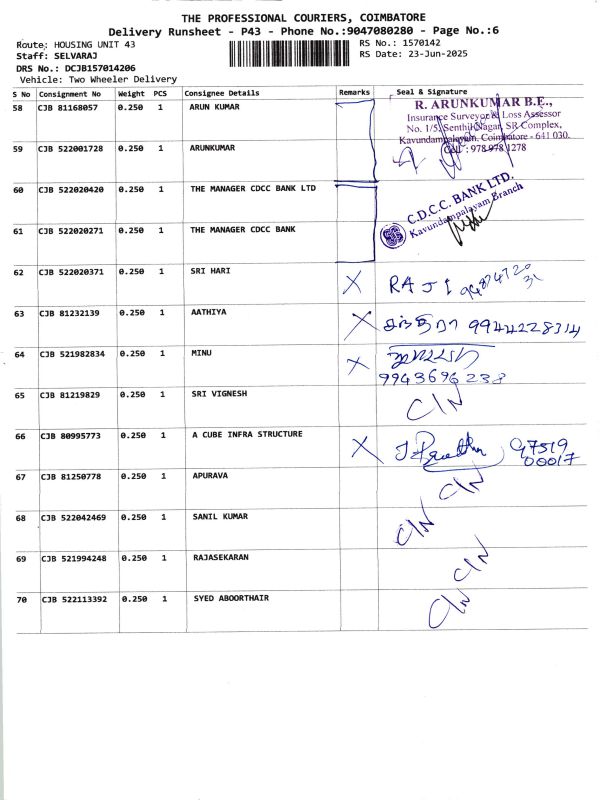 THE PROFESSIONAL COURIERS, COIMBATORE
Delivery Runsheet - P43 - Phone No.:9047080280 - Page No.:6
Route: HOUSING UNIT 43
RS No.: 1570142
Staff: SELVARAJ
RS Date: 23-Jun-2025
DRS No.: DCJB157014206
Vehicle: Two Wheeler Delivery
S No Consignment No Weight PCS Consignee Details Remarks Seal & Signature
58 CJB 81168057 0.250 1 ARUN KUMAR
R. ARUNKUMAR B.E.,
Insurance Surveyor & Loss Assessor
No. 1/5, Senthil Nagar, SR Complex,
Kavundampalayam, Coimbatore - 641 030.
Cell : 978 978 1278
59 CJB 522001728 0.250 1 ARUNKUMAR
60 CJB 522020420 0.250 1 THE MANAGER CDCC BANK LTD
C.D.C.C. BANK LTD.
Kavundampalayam Branch
61 CJB 522020271 0.250 1 THE MANAGER CDCC BANK
62 CJB 522020371 0.250 1 SRI HARI X RAJI
63 CJB 81232139 0.250 1 AATHIYA X 9944228314
64 CJB 521982834 0.250 1 MINU X
9943696238
65 CJB 81219829 0.250 1 SRI VIGNESH C/N
66 CJB 80995773 0.250 1 A CUBE INFRA STRUCTURE X 97519
00017
67 CJB 81250778 0.250 1 APURAVA C/N
68 CJB 522042469 0.250 1 SANIL KUMAR C/N
69 CJB 521994248 0.250 1 RAJASEKARAN C/N
70 CJB 522113392 0.250 1 SYED ABOORTHAIR C/N